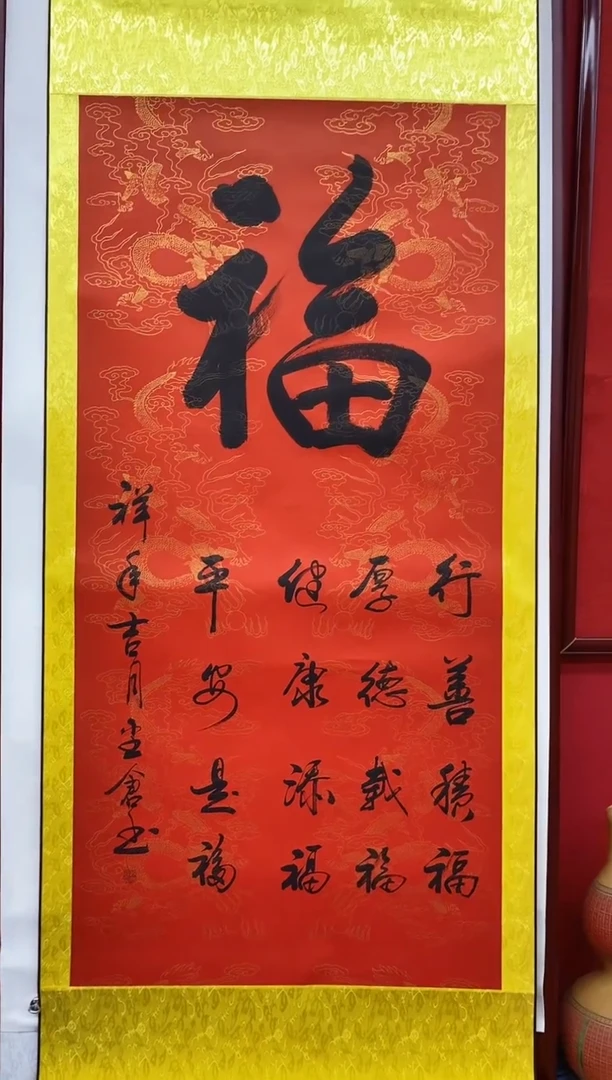 福
行善積福
厚德載福
健康添福
平安是福
祥年吉月